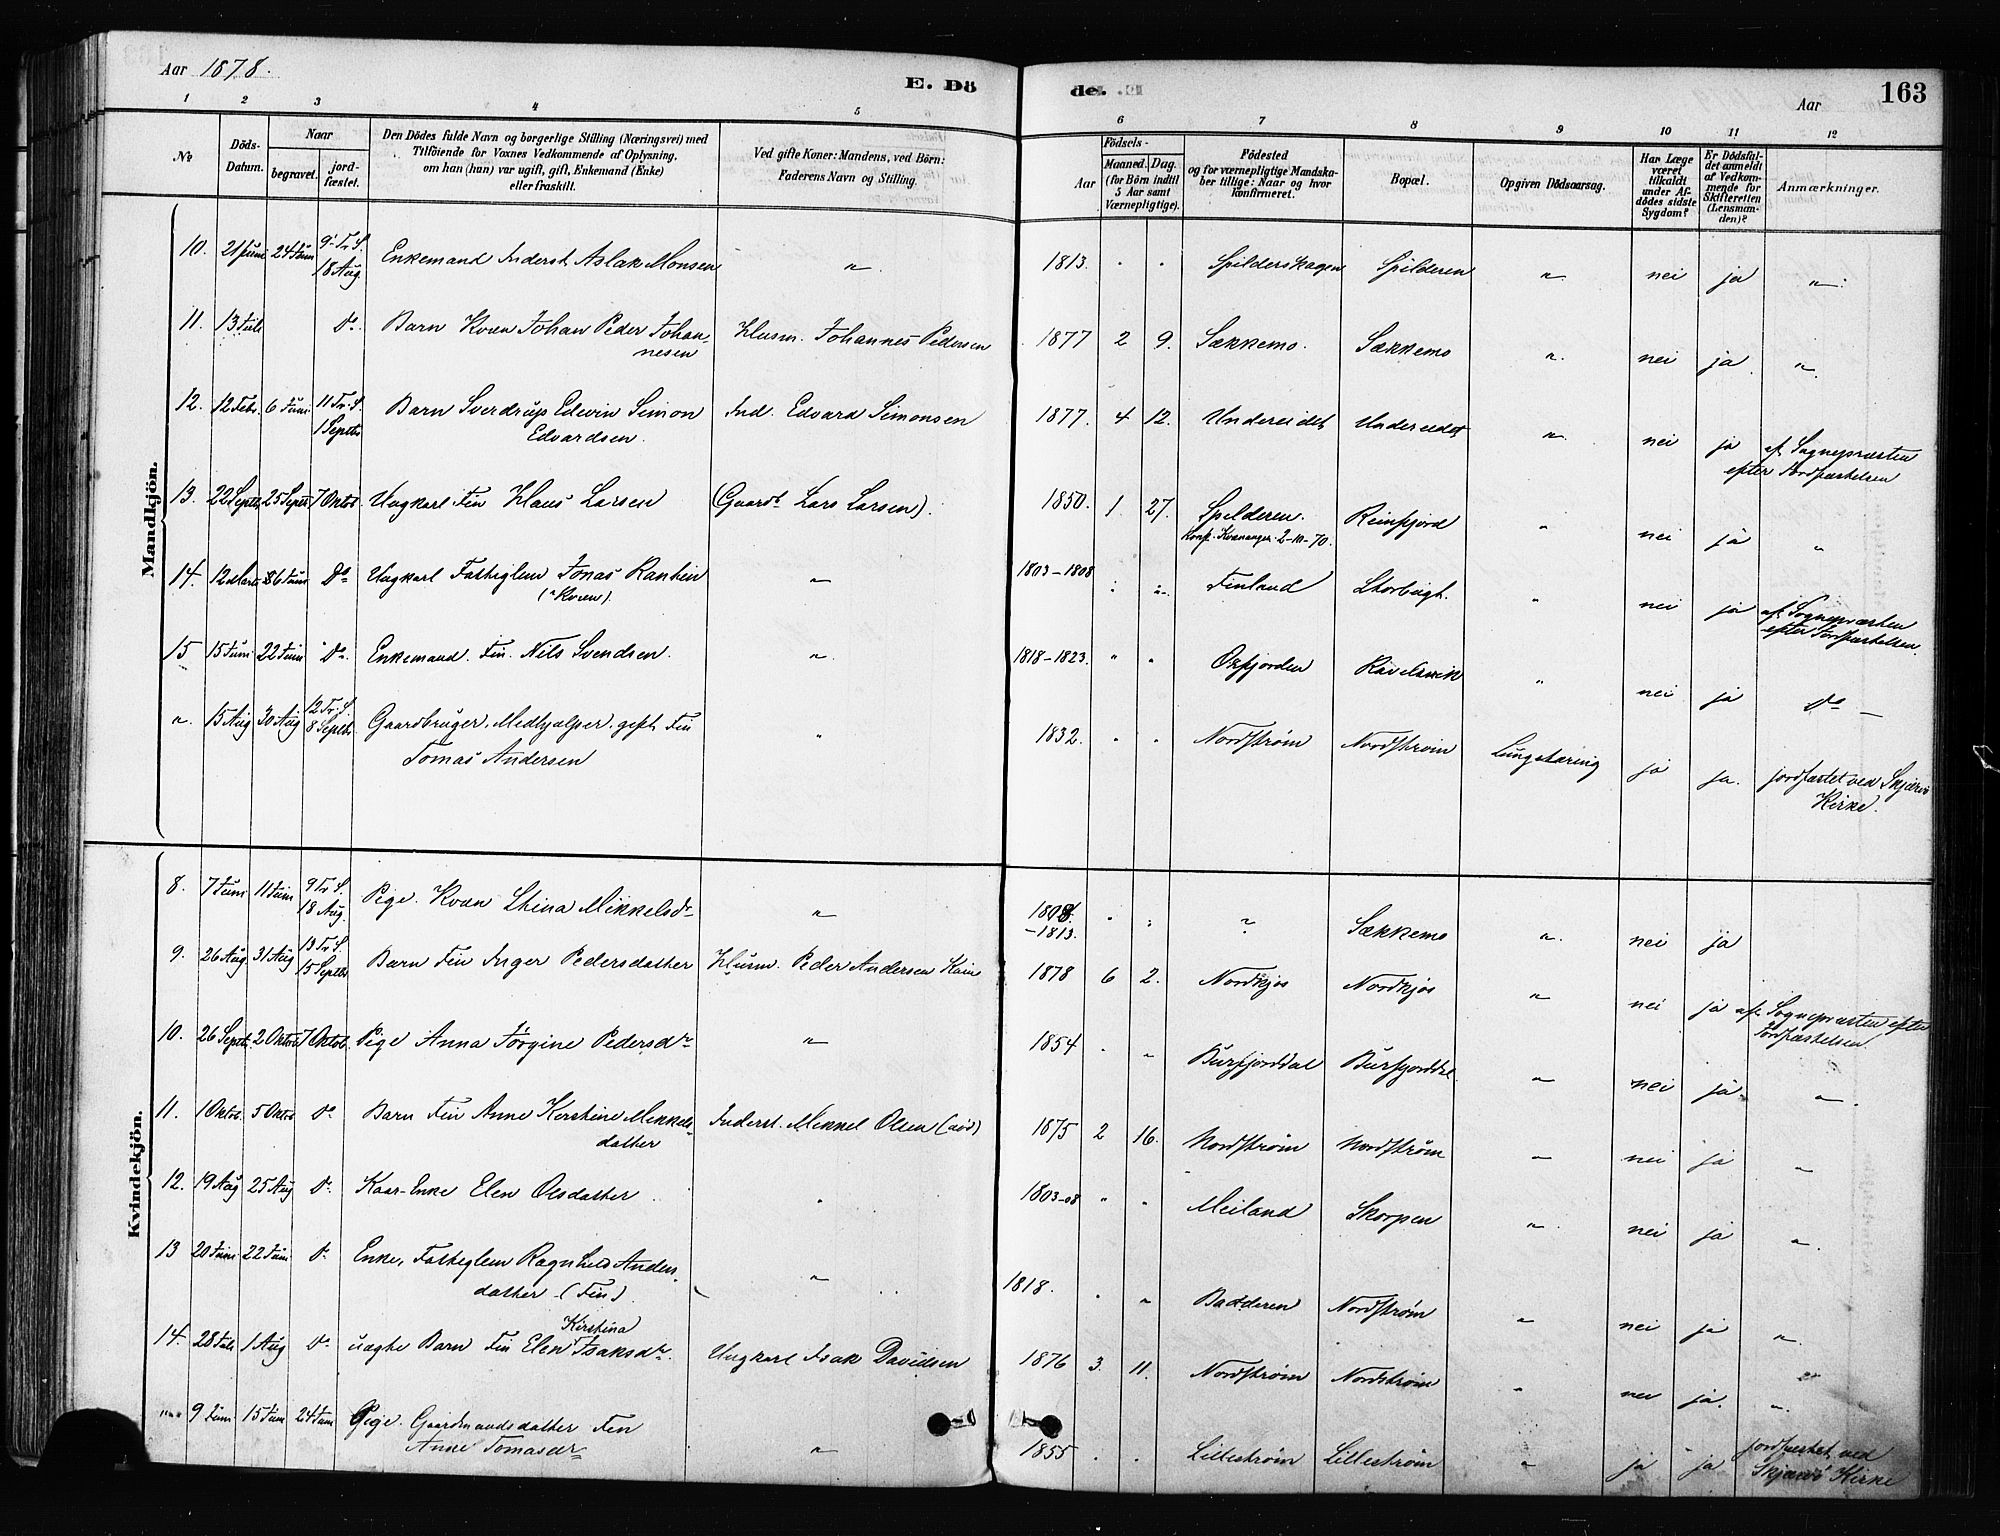 Aar 1878.
E. Dö
de.
Aar
163
1 2 3 4 5 6 7 8 9 10 11 12
No
Döds-Datum.
Naar
begravet.
jord-fæstet.
Den Dödes fulde Navn og borgerlige Stilling (Næringsvei) med
Tilföiende for Voxnes Vedkommende af Oplysning,
om han (hun) var ugift, gift, Enkemand (Enke)
eller fraskilt.
Ved gifte Koner: Mandens, ved Börn:
Faderens Navn og Stilling.
Födsels-
Aar
Maaned. Dag.
(for Börn indtil
5 Aar samt
Værnepligtige).
Födested
og for værnepligtige Mandska-
ber tillige: Naar og hvor
konfirmeret.
Bopæl.
Opgiven Dödsaarsag.
Har Læge
været
tilkaldt
under Af-
dödes sidste
Sygdom?
Er Dödsfal-
det anmeldt
af Vedkom-
mende for
Skifteretten
(Lensman-
den)?
Anmærkninger.
Mandkjön.
10. 21 Juni 24 Juni 9. Tr. S. 18 Aug. Enkemand Inderst Aslak Monsen " 1813. " " Spilderskagen Spilderen " nei ja "
11. 13 Juli Do. Barn Kvæn Johan Peder Johan-
nesen Husm. Johannes Pedersen 1877 2 9. Sækkemo. Sækkemo " nei ja "
12. 12 Febr. 6 Juni 11 Tr. S. 1 Septbr Barn Sverdrup Edvin Simon
Edvardsen. Ind. Edvard Simonsen 1877. 4 12. Undereidet Undereidet " nei ja af Sognepræsten
efter Jordfæstelsen
13. 22 Septb. 25 Septb 7 Oktob Ungkarl Fin Klaus Larsen (Gaardb. Lars Larsen). 1850. 1. 27. Spilderen.
Konf. Kvænanger 2-10-70. Reinfjord " nei ja "
14. 12 Marts 6 Juni Do Ungkarl Fattiglem Jonas Rantien
(Kvæn). " 1803-1808 " " Finland Storbugt. " nei ja af Sognepræsten
efter Jordfæstelsen.
15 15 Juni 22 Juni Do. Enkemand. Fin. Nils Svendsen. " 1818-1823. " " Oxfjorden " nei ja Do
" 15 Aug 30 Aug 12 Tr. S. 8 Septbr. Gaardbruger, Medhjælper, gift Fin
Tomas Andersen " 1832. " " Nordstrøm Nordstrøm Lungetæring ja ja. jordfæstet ved Skjærvø
Kirke.
Kvindekjön.
8. 7 Juni 11 Juni 9 Tr. S. 18 Aug. Pige. Kvæn Stina Mikkelsdr " 1808
-1813. " " " Sækkemo " nei ja
9. 26 Aug. 31 Aug 13 Tr. S. 15 Septbr Barn Fin Inger Pedersdatter Husm. Peder Andersen 1878 6 2. Nordkjos Nordkjos " nei ja af Sognepræsten efter
Jordfæstelsen.
10. 26 Septb. 2 Oktob 7 Oktob. Pige Anna Jørgine Pedersdr " 1854 " " Burfjorddal Burfjorddal " nei ja "
11. 1 Oktob. 5 Oktob Do. Barn Fin Anne Kirstine Mikkels-
datter Inderst. Mikkel Olsen (død) 1875 2 16. Nordstrøm Nordstrøm " nei ja "
12. 19 Aug 25 Aug Do. Kaar-Enke Elen Olsdatter " 1803-08 " " Meiland Skorpen " nei ja "
13 20 Juni 22 Juni Do. Enke, Fattiglem Ragnhild Anders-
datter (Fin). " 1818. " " Badderen Nordstrøm " nei ja "
14. 28 Juli 1 Aug Do. uægte Barn Fin Elen Kirstina Isaksdr. Ungkarl Isak Davidsen 1876 3. 11. Nordstrøm Nordstrøm " nei ja. "
" 9 Juni 15 Juni 24 Juni Pige. Gaardmandsdatter Fin
Anne Tomasdr " 1855 " " Lillestrøm Lillestrøm " ja ja jordfæstet ved
Skjærvø Kirke